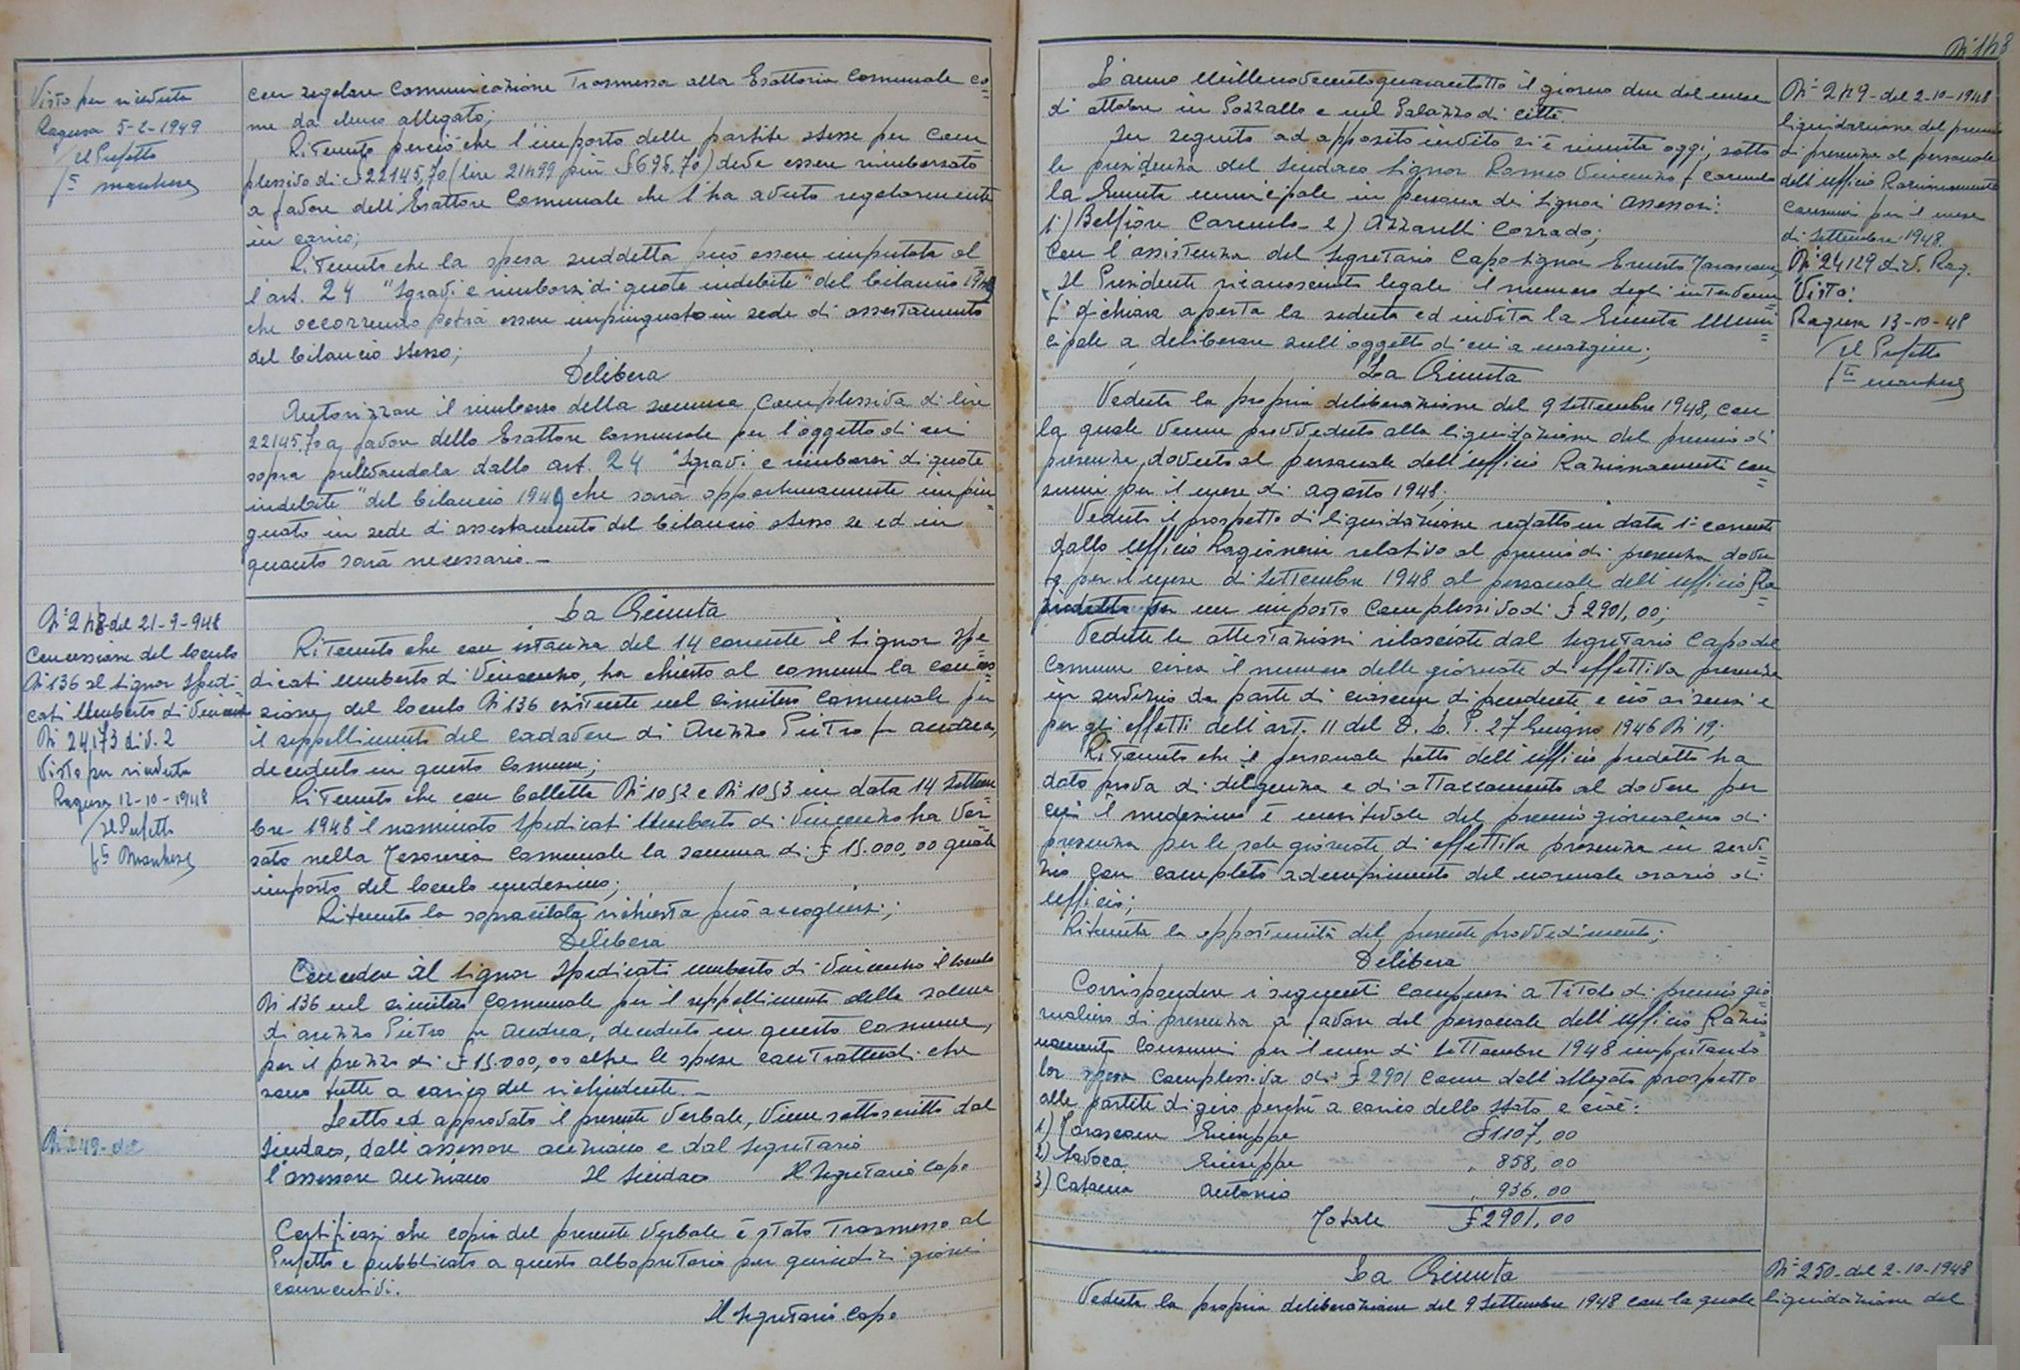 Visto per ricevuta
Ragusa 5-2-1949
Il Prefetto
con regolare comunicazione trasmessa alla Esattoria Comunale co=
me da elenco allegato;
Ritenuto perciò che l'importo delle partite stesse per com
plessivo di £ 22145,70 (lire 21499 più £ 696.70) deve essere rimborsato
a favore dell'Esattore Comunale che l'ha avuto regolarmente
in carico;
Ritenuto che la spesa suddetta può essere imputata al
l'art. 24 "Sgravi e rimborsi di quote indebite" del bilancio 1948
che occorrendo potrà essere impinguato in sede di assestamento
del bilancio stesso;
Delibera
Autorizzare il rimborso della somma complessiva di lire
22145.70 a favore dello Esattore Comunale per l'oggetto di cui
sopra prelevandola dallo art. 24 "Sgravi e rimborsi di quote
indebite" del bilancio 1949 che sarà opportunamente impin=
guato in sede di assestamento del bilancio stesso se ed in
quanto sarà necessario.-
N° 248 del 21-9-948
Concessione del loculo
N° 136 al Signor Spedi-
cati Umberto di Vincenzo
N° 24173 div. 2
Visto per ricevuta
Ragusa 12-10-1948
Il Prefetto
La Giunta
Ritenuto che con istanza del 14 corrente il Signor Spe=
dicati Umberto di Vincenzo, ha chiesto al comune la conces=
sione del loculo N° 136 esistente nel cimitero Comunale per
il seppellimento del cadavere di Arezzo Pietro fu Andrea,
deceduto in questo Comune;
Ritenuto che con bollette N° 1052 e N° 1053 in data 14 Settem=
bre 1948 il nominato Spedicati Umberto di Vincenzo ha ver=
sato nella Tesoreria Comunale la somma di £ 15.000,00 quale
importo del loculo medesimo;
Ritenuto la sopracitata richiesta può accogliersi;
Delibera
Concedere al Signor Spedicati Umberto di Vincenzo il loculo
N° 136 nel cimitero Comunale per il seppellimento della salma
di Arezzo Pietro fu Andrea, deceduto in questo Comune,
per il prezzo di £ 15.000,00 oltre le spese contrattuali che
sono tutte a carico del richiedente.-
Letto ed approvato il presente verbale, viene sottoscritto dal
Sindaco, dall'assessore anziano e dal Segretario
l'assessore anziano Il Sindaco Il Segretario Capo
N° 249- del
Certificasi che copia del presente Verbale è stato trasmesso al
Prefetto e pubblicato a questo albo pretorio per quindici giorni
consecutivi.
Il Segretario Capo
N° 148
L'anno Millenovecentoquarantotto il giorno due del mese
di ottobre in Pozzallo e nel Palazzo di città
In seguito ad apposito invito si è riunita oggi, sotto
la presidenza del Sindaco Signor Romeo Vincenzo fu Carmelo
la Giunta municipale in persona dei Signori Assessori:
1) Belfiore Carmelo- 2) Azzarelli Corrado;
Con l'assistenza del Segretario Capo Signor Ernesto
Il Presidente riconosciuto legale il numero degli intervenu=
ti dichiara aperta la seduta ed invita la Giunta Muni=
cipale a deliberare sull'oggetto di cui a margine;
N° 249- del 2-10-1948
liquidazione del premio
di presenza al personale
dell'ufficio Razionamento
consumi per il mese
di Settembre 1948.
N° 24129 div. Rag.
Visto:
Ragusa 13-10-48
Il Prefetto
La Giunta
Veduta la propria deliberazione del 9 Settembre 1948, con
la quale venne provveduto alla liquidazione del premio di
presenza, dovuto al personale dell'ufficio Razionamenti con=
sumi per il mese di agosto 1948;
Veduto il prospetto di liquidazione redatto in data 1° corrente
dallo Ufficio Ragioneria relativo al premio di presenza dovu
to per il mese di Settembre 1948 al personale dell'ufficio Ra=
per un importo complessivo di £ 2901,00;
Vedute le attestazioni rilasciate dal Segretario Capo del
Comune circa il numero delle giornate di effettiva presenza
in servizio da parte di ciascun dipendente e ciò ai sensi e
per gli effetti dell'art. 11 del D. L. P. 27 Giugno 1946 N° 19;
Ritenuto che il personale tutto dell'ufficio predetto ha
dato prova di diligenza e di attaccamento al dovere per
cui il medesimo è meritevole del premio giornaliero di
presenza per le sole giornate di effettiva presenza in servi=
zio con completo adempimento del normale orario di
ufficio;
Ritenuta la opportunità del presente provvedimento;
Delibera
Corrispondere i seguenti compensi a titolo di premio gior=
naliero di presenza a favore del personale dell'ufficio Razio=
namento consumi per il mese di Settembre 1948 imputando
la spesa complessiva di £ 2901 come dall'allegato prospetto
alle partite di giro perché a carico dello Stato e cioè:
1) Tarascone Giuseppe £ 1107,00
2) Savoca Giuseppe " 858,00
3) Catania Antonio " 936,00
Totale £ 2901,00
La Giunta
Veduta la propria deliberazione del 9 Settembre 1948 con la quale
N° 250- del 2-10-1948
liquidazione del